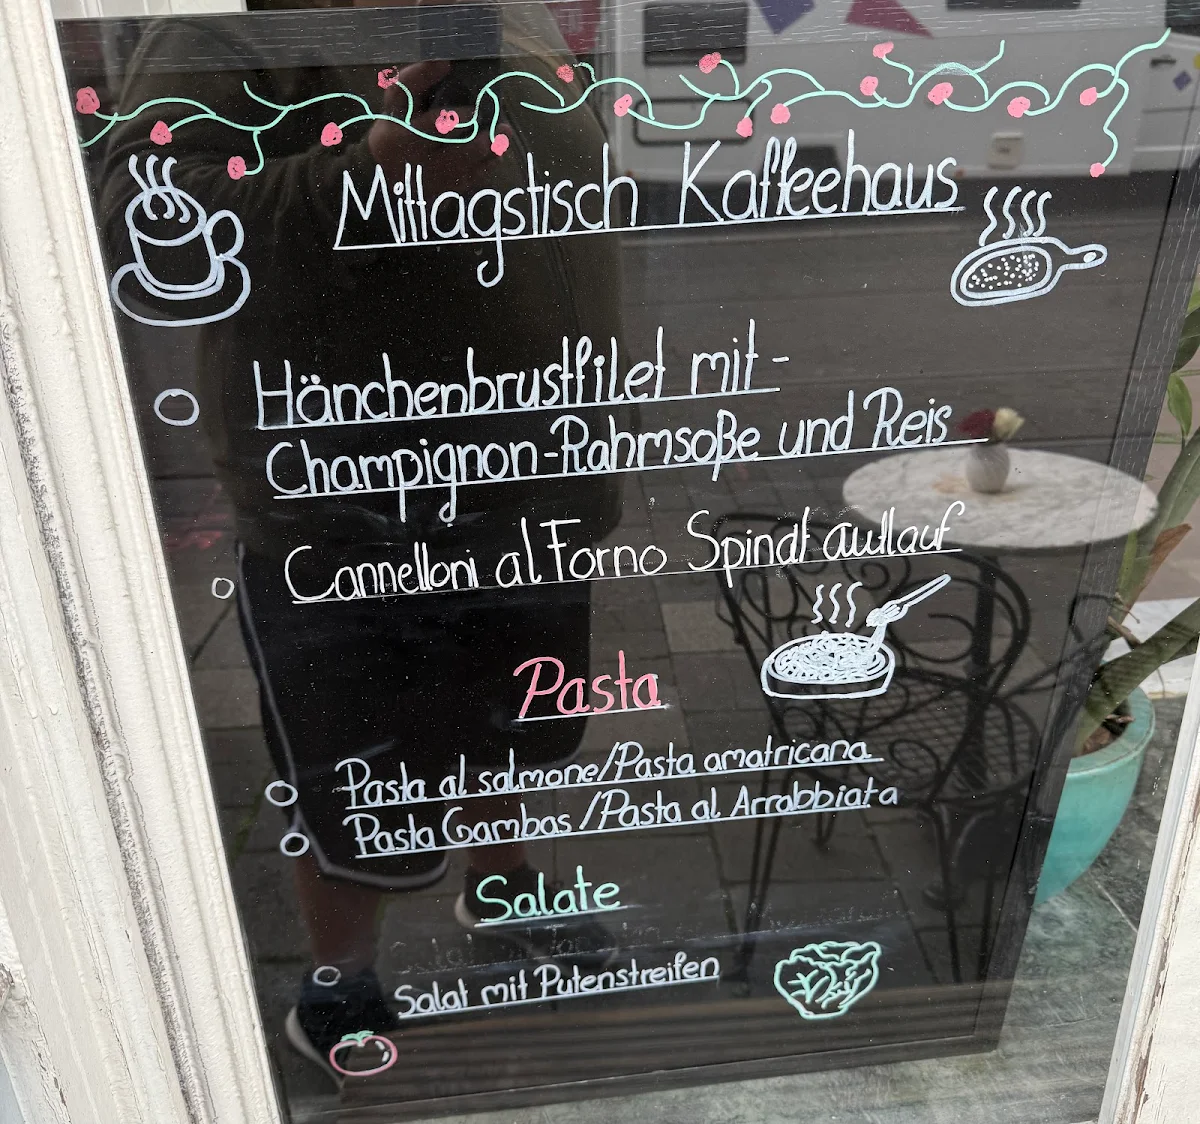 Mittagstisch Kaffeehaus
Hänchenbrustfilet mit -
Champignon-Rahmsoße und Reis
Cannelloni al Forno Spindt auflauf
Pasta
Pasta al salmone/Pasta amatricana
Pasta Gambas /Pasta al Arrabbiata
Salate
Salat mit Putenstreifen